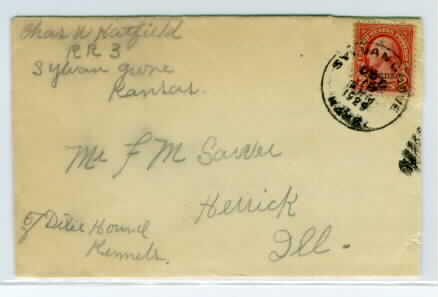 Chas W Hatfield
RR 3
Sylvan Grove
Kansas.
SYLVAN GROVE
Mr F M Sawer
Herrick
Ill.
℅ Dixie Hound
Kennels.